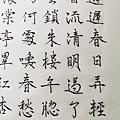 遲春日弄輕
香流清明過
鎖朱樓午牕
何處喚春愁
棠亭畔紅杏